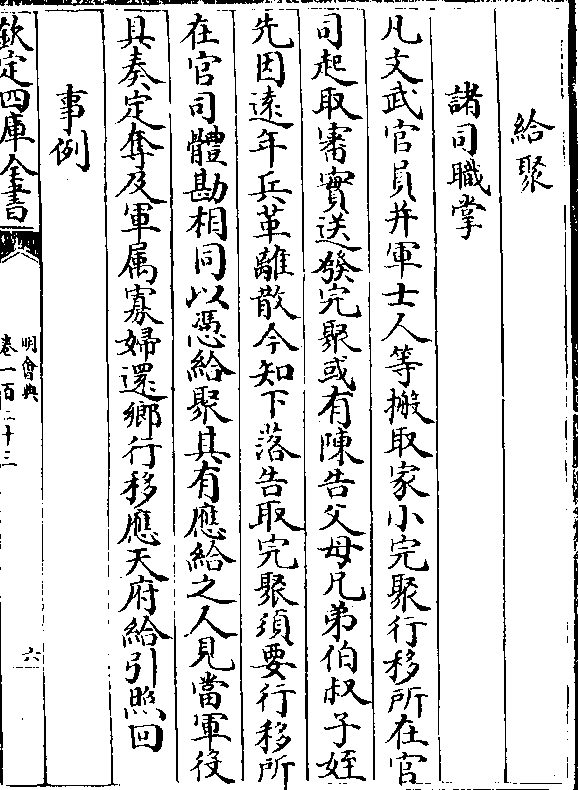 給聚
諸司職掌
凡文武官員并軍士人等搬取家小完聚行移所在官
司起取審實送發完聚或有陳告父母兄弟伯叔子姪
先因遠年兵革離散今知下落告取完聚須要行移所
在官司體勘相同以憑給聚其有應給之人見當軍役
具奏定奪及軍属寡婦還鄉行移應天府給引照回
事例
欽定四庫全書
明會典
卷一百二十三
六